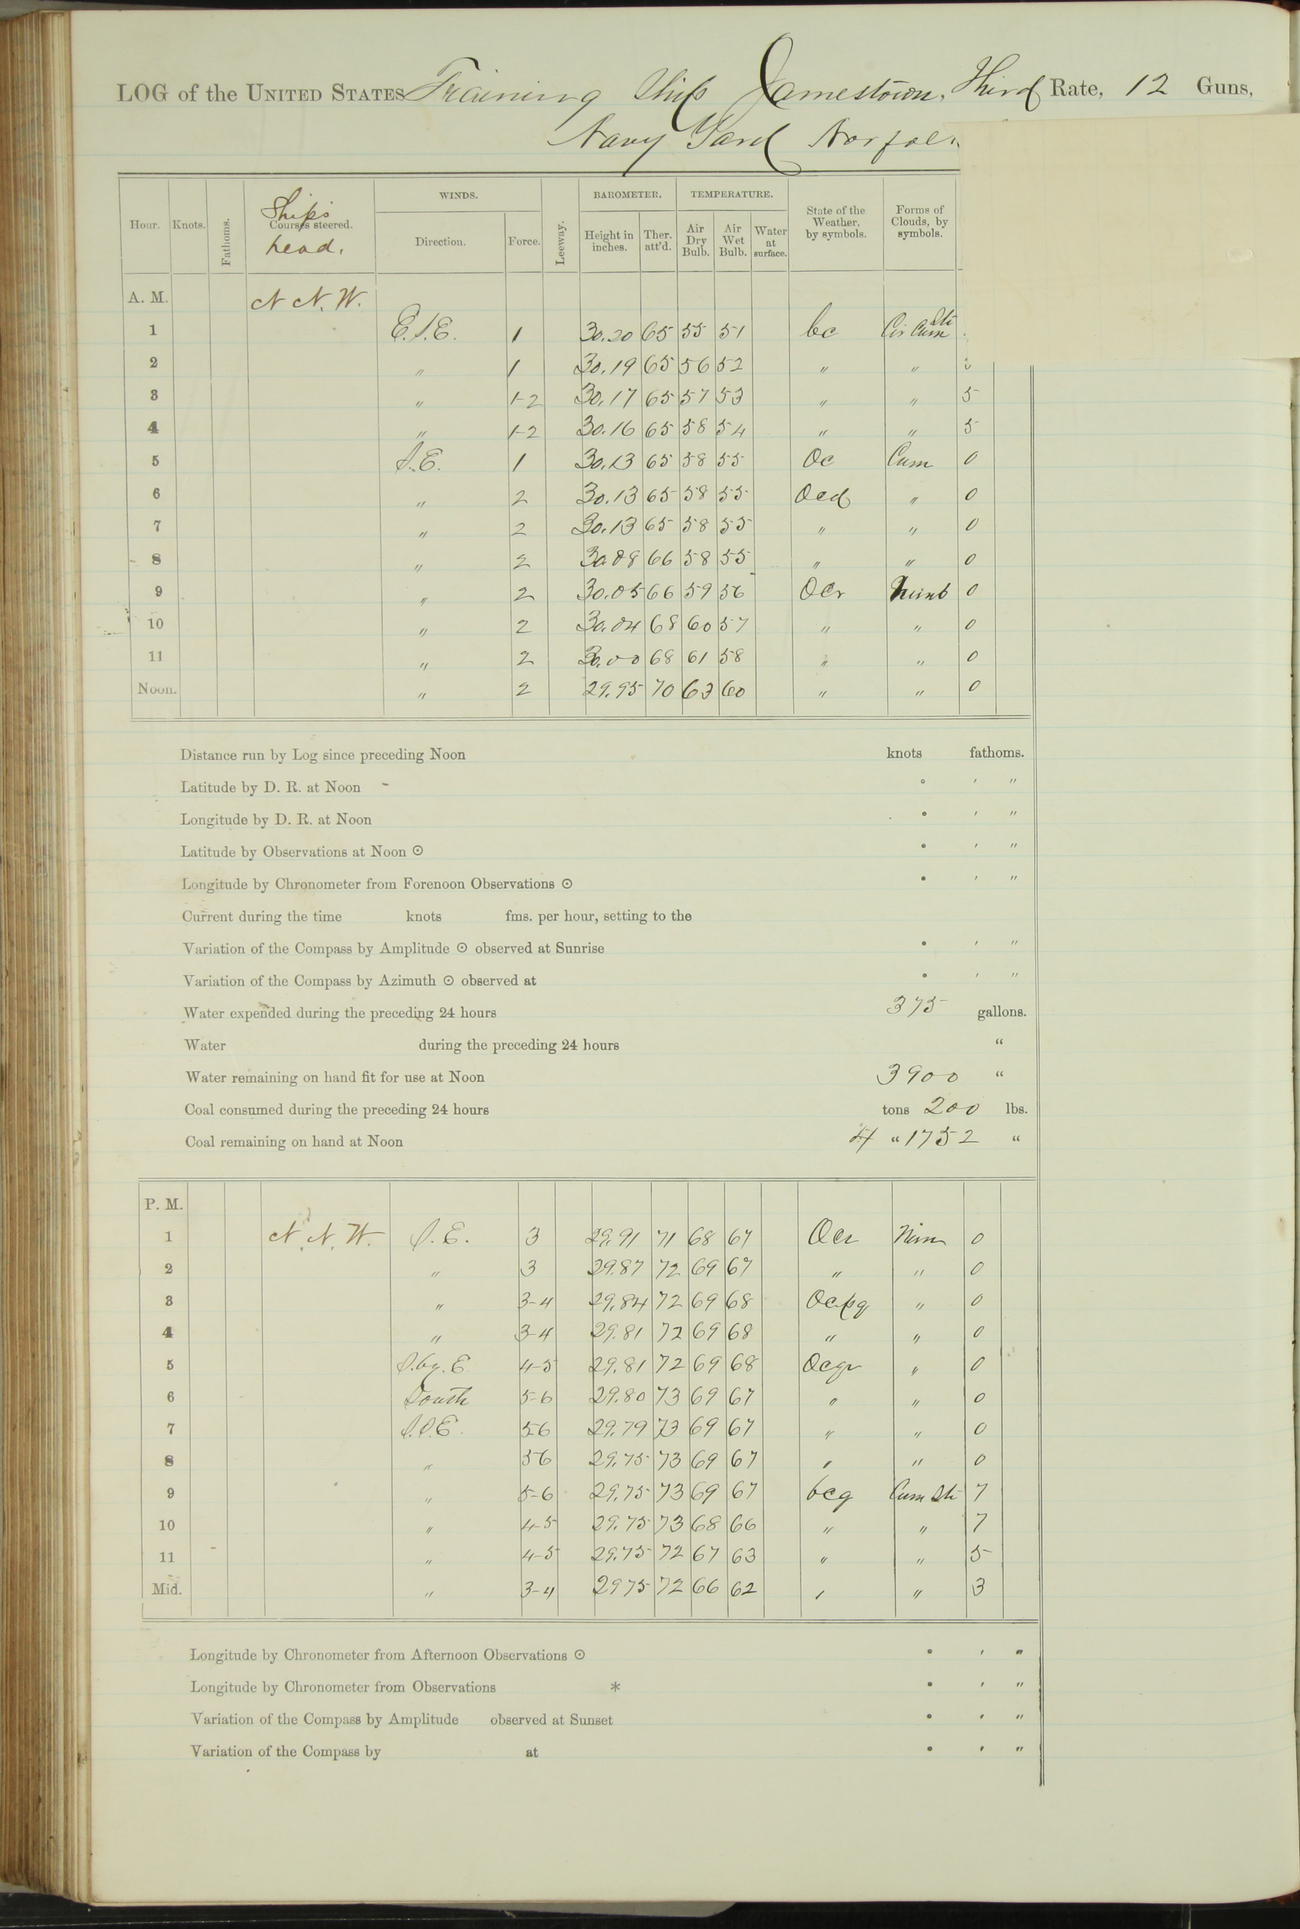 LOG of the UNITED STATES Training Ship Jamestown, Third Rate, 12 Guns,
Navy Yard Norfolk
Hour. Knots. Fathoms. Ship's Courses steered. head. WINDS. Direction. Force. Leeway. BAROMETER. Height in inches. Ther. att'd. TEMPERATURE. Air Dry Bulb. Air Wet Bulb. Water at surface. State of the Weather, by symbols. Forms of Clouds, by symbols.
A. M. N N. W.
1 E.S.E. 1 30.20 65 55 51 bc Cir Cum Str
2 " 1 30.19 65 56 52 " "
3 " 1-2 30.17 65 57 53 " " 5
4 " 1-2 30.16 65 58 54 " " 5
5 S.E. 1 30.13 65 58 55 Oc Cum 0
6 " 2 30.13 65 58 55 Ocd " 0
7 " 2 30.13 65 58 55 " " 0
8 " 2 30.08 66 58 55 " " 0
9 " 2 30.05 66 59 56 Ocr Nimb 0
10 " 2 30.04 68 60 57 " " 0
11 " 2 30.00 68 61 58 " " 0
Noon. " 2 29.95 70 63 60 " " 0
Distance run by Log since preceding Noon knots fathoms.
Latitude by D. R. at Noon ° ' "
Longitude by D. R. at Noon ° ' "
Latitude by Observations at Noon ☉ ° ' "
Longitude by Chronometer from Forenoon Observations ☉ ° ' "
Current during the time knots fms. per hour, setting to the
Variation of the Compass by Amplitude ☉ observed at Sunrise ° ' "
Variation of the Compass by Azimuth ☉ observed at ° ' "
Water expended during the preceding 24 hours 375 gallons.
Water during the preceding 24 hours “
Water remaining on hand fit for use at Noon 3900 “
Coal consumed during the preceding 24 hours tons 200 lbs.
Coal remaining on hand at Noon 4 “ 1752 “
P. M.
1 N. N. W. S. E. 3 29.91 71 68 67 Ocr Nim 0
2 " 3 29.87 72 69 67 " " 0
3 " 3-4 29.84 72 69 68 Ocpq " 0
4 " 3-4 29.81 72 69 68 " " 0
5 S.by.E 4-5 29.81 72 69 68 Ocqr " 0
6 South 5-6 29.80 73 69 67 " " 0
7 S.S.E. 56 29.79 73 69 67 " " 0
8 " 56 29.75 73 69 67 " " 0
9 " 5-6 29.75 73 69 67 bcq Cum Str 7
10 " 4-5 29.75 73 68 66 " " 7
11 " 4-5 29.75 72 67 63 " " 5
Mid. " 3-4 29 75 72 66 62 " " 3
Longitude by Chronometer from Afternoon Observations ☉ ° ' "
Longitude by Chronometer from Observations * ° ' "
Variation of the Compass by Amplitude observed at Sunset ° ' "
Variation of the Compass by at ° ' "